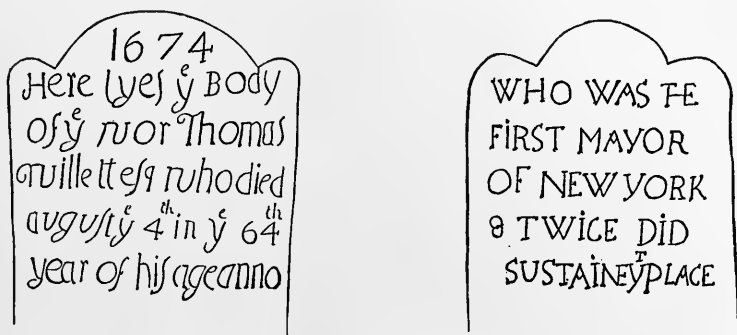 1674
Here lyeſ yᵉ Body
Of yᵉ wor Thomas
willett eſq who died
auguſt yᵉ 4ᵗʰ in yᵉ 64ᵗʰ
year of hiſ age anno
WHO WAS THE
FiRST MAYOR
OF NEW YORK
& TWiCE DiD
SUSTAiNE yᵀ PLACE